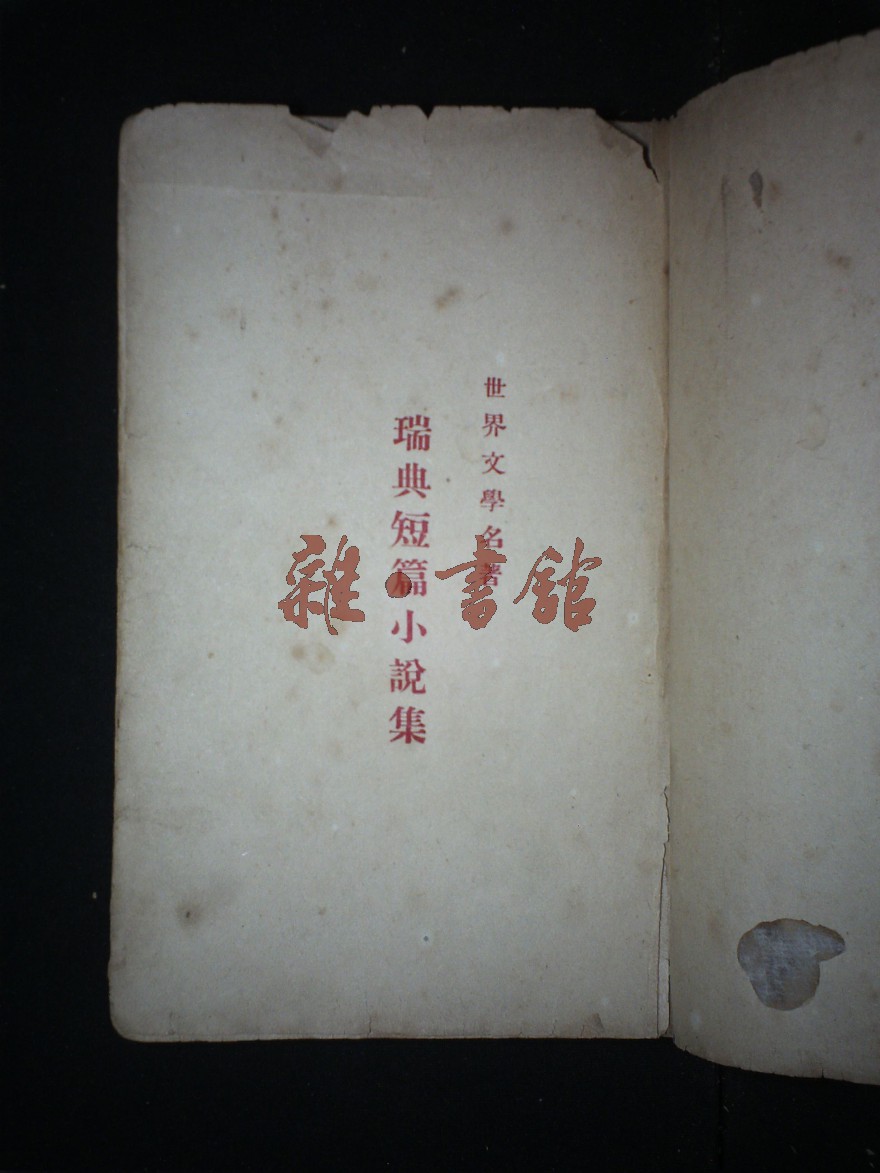 世界文學名著
瑞典短篇小說集
雜·書館